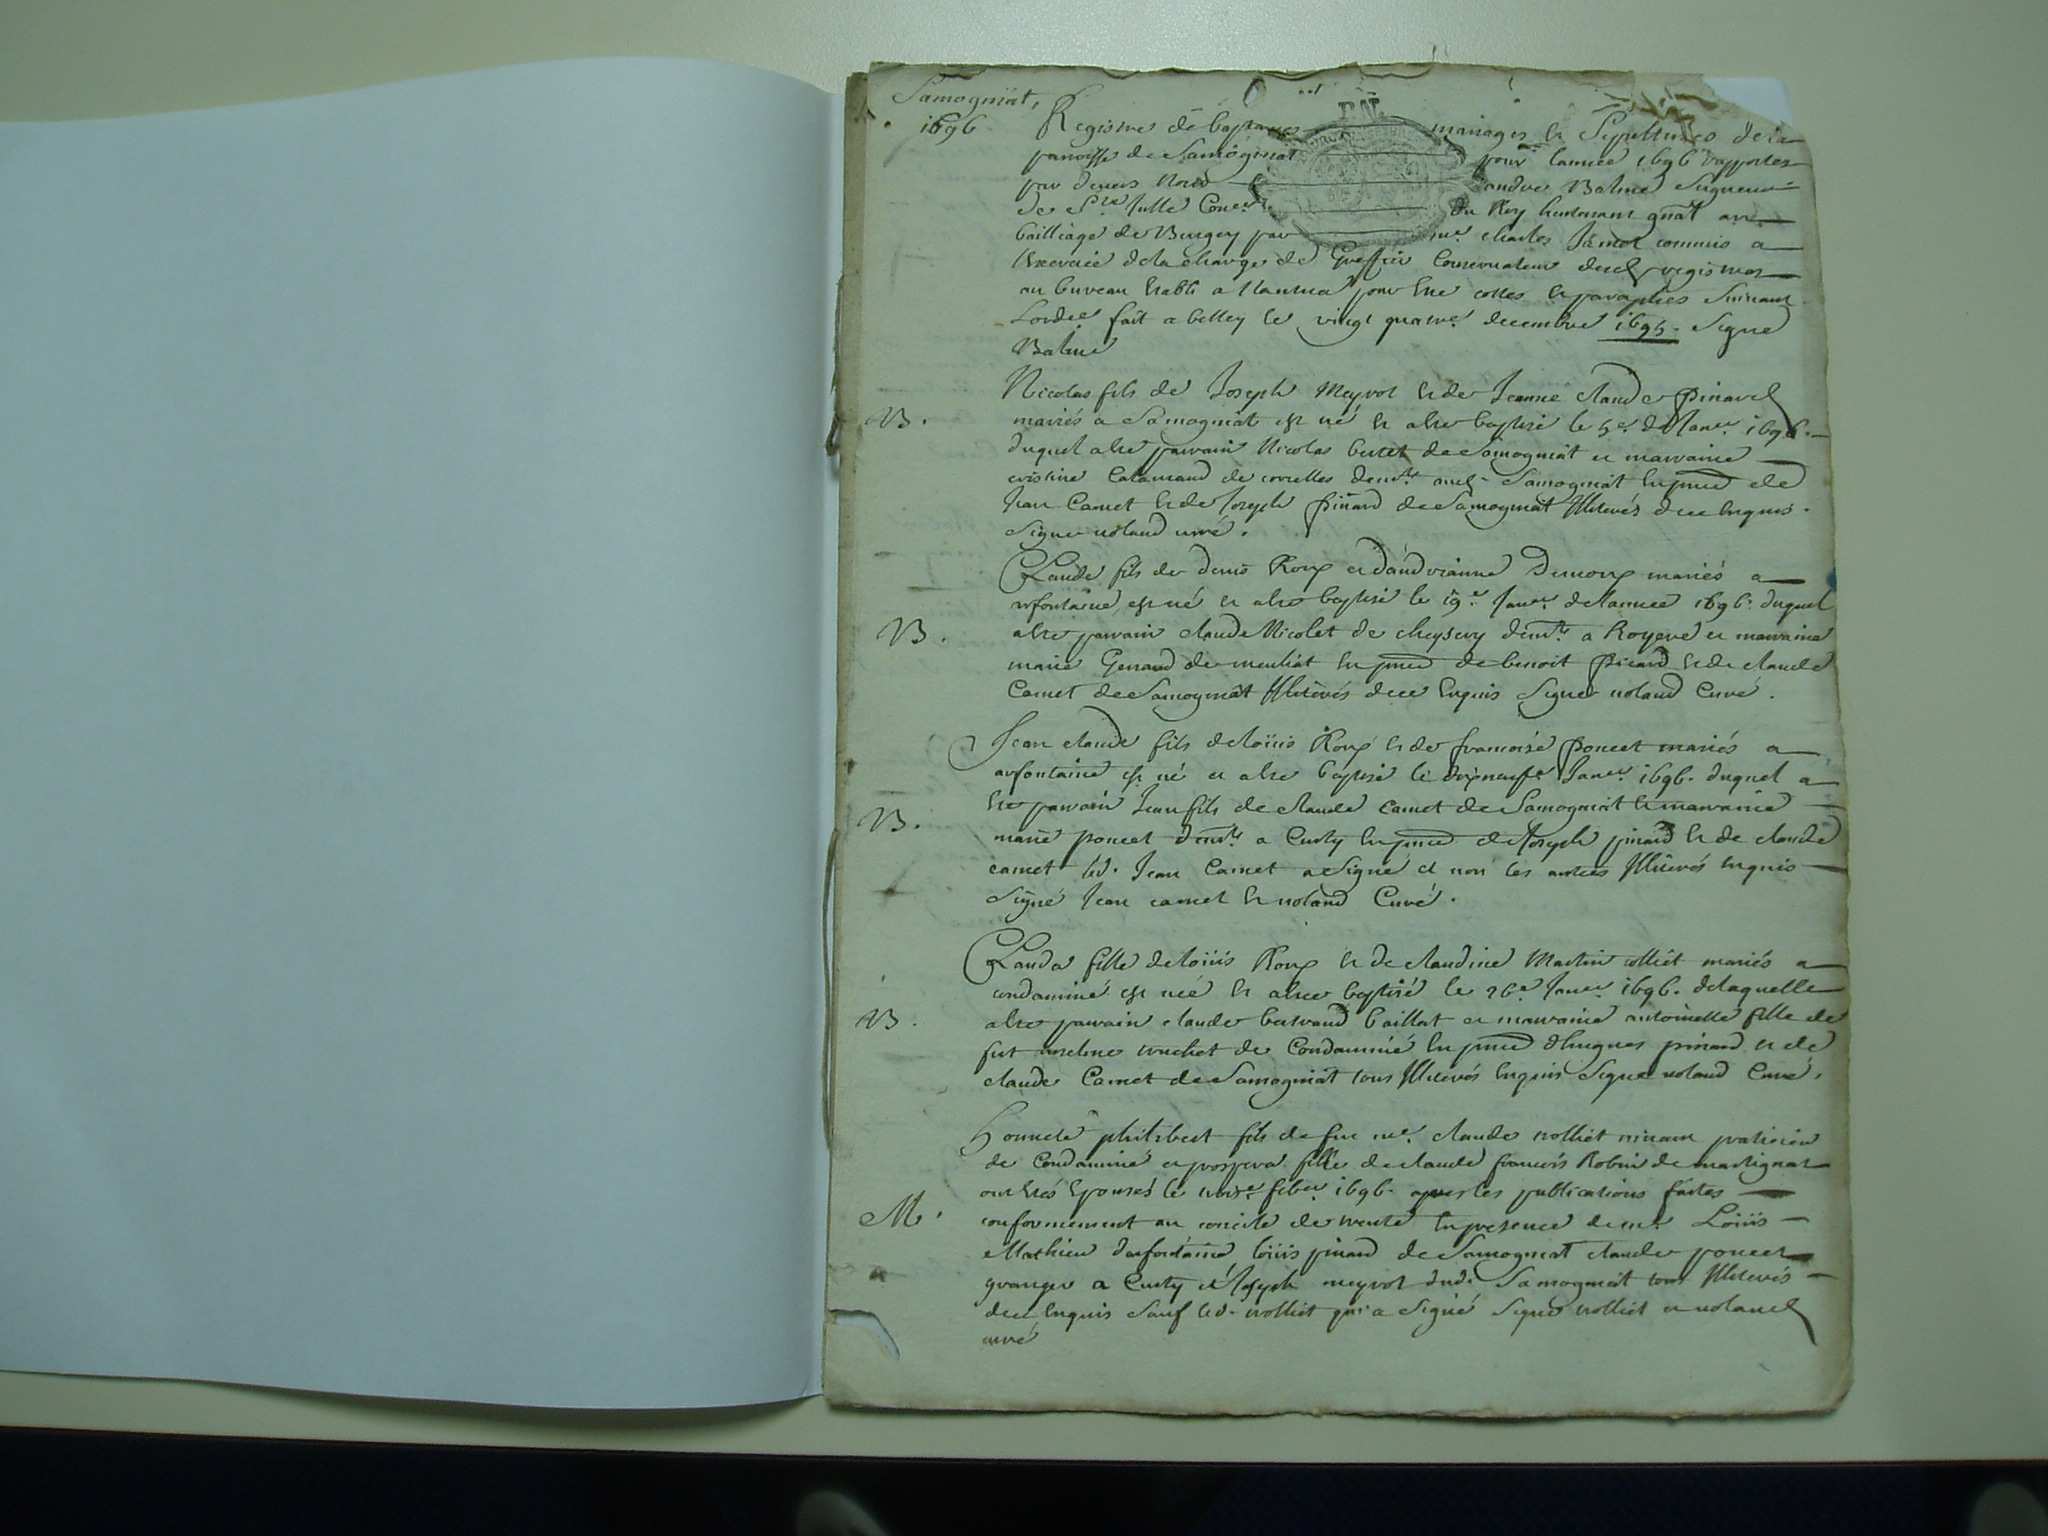 Samogniat,
1696.
Registre de baptemes mariages et Sepultures de la
paroisse de Samogniat pour l'année 1696 rapportes
par devers nous andre Balme Seigneur
de Ste Julle Coner du Roy lieutenant gnal au
bailliage de Bugey par me. charles Jamot commis a
l'exercice de la charge de Greffier Conservateur desd registres
au bureau etabli a Nantua pour etre cottes et paraphes Suivant
Lordce fait a belley le vingt quatre decembre 1695. Signe
Balme
Nicolas fils de Joseph Meyrot et de Jeanne claude pinard
B.
mariés a Samogniat est né et a été baptisé le 5e de Janer 1696.
duquel a été parrain Nicolas de Samogniat et marraine
de demte aud Samogniat en pnce de
Jean Carnet et de Joseph pinard de Samogniat Illiterés de ce enquis.
Signe noland curé.
Claude fils de denis Roux et d'andrianne Demoux mariés a
arfontaine est né et a été baptisé le 19e Janer de l'annee 1696. duquel
B.
a été parrain claude Nicolet de cheysery demt a Royere et marraine
marie Gerraud de meuliat en pnce de benoit picard et de claude
Carnet de Samogniat Illiterés de ce enquis Signe noland Curé.
Jean claude fils de loüis Roux et de francoise poncet mariés a
arfontaine est né et a été baptisé le dixneufe Janer 1696. duquel a
été parrain Jean fils de claude carnet de Samogniat et marraine
B.
marie poncet demte a Curty en pnce de Joseph pinard et de claude
carnet led. Jean Carnet a Signé et non les autres Illiterés enquis
Signé Jean carnet et noland Curé.
Clauda fille de loüis Roux et de claudine Martin colliet mariés a
condamine est née et a été baptisé le 26e Janer 1696. de laquelle
B.
a été parrain claude bertrand baillat et marraine antoinette fille de
fut anselme touchet de Condamine en pnce d'hugues pinard et de
claude Carnet de Samogniat tous Illiterés enquis Signe noland Curé.
honnete philibert fils de feu me. claude nolliet vivant praticien
de Condamine et prospera fille de claude francois Robin de martignat
ont etés epousés le feber 1696. apres les publications faites
M.
conformement au concile de trente en presence de me. Loüis
Mathieu darfontaine loüis pinard de Samogniat claude poncet
granger a Curty et Joseph meyrot dud. Samogniat tous Illiterés
de ce enquis Sauf led. nolliet qui a Signé Signe nolliet et noland
curé